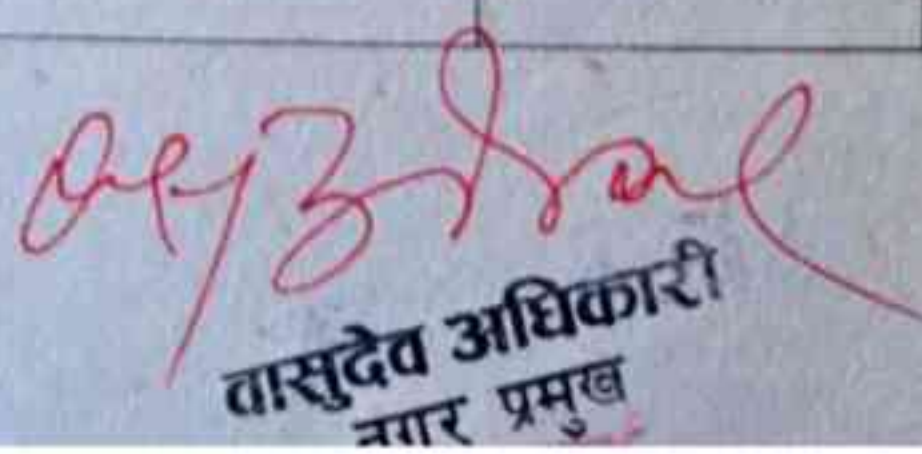 वासुदेव अधिकारी
नगर प्रमुख